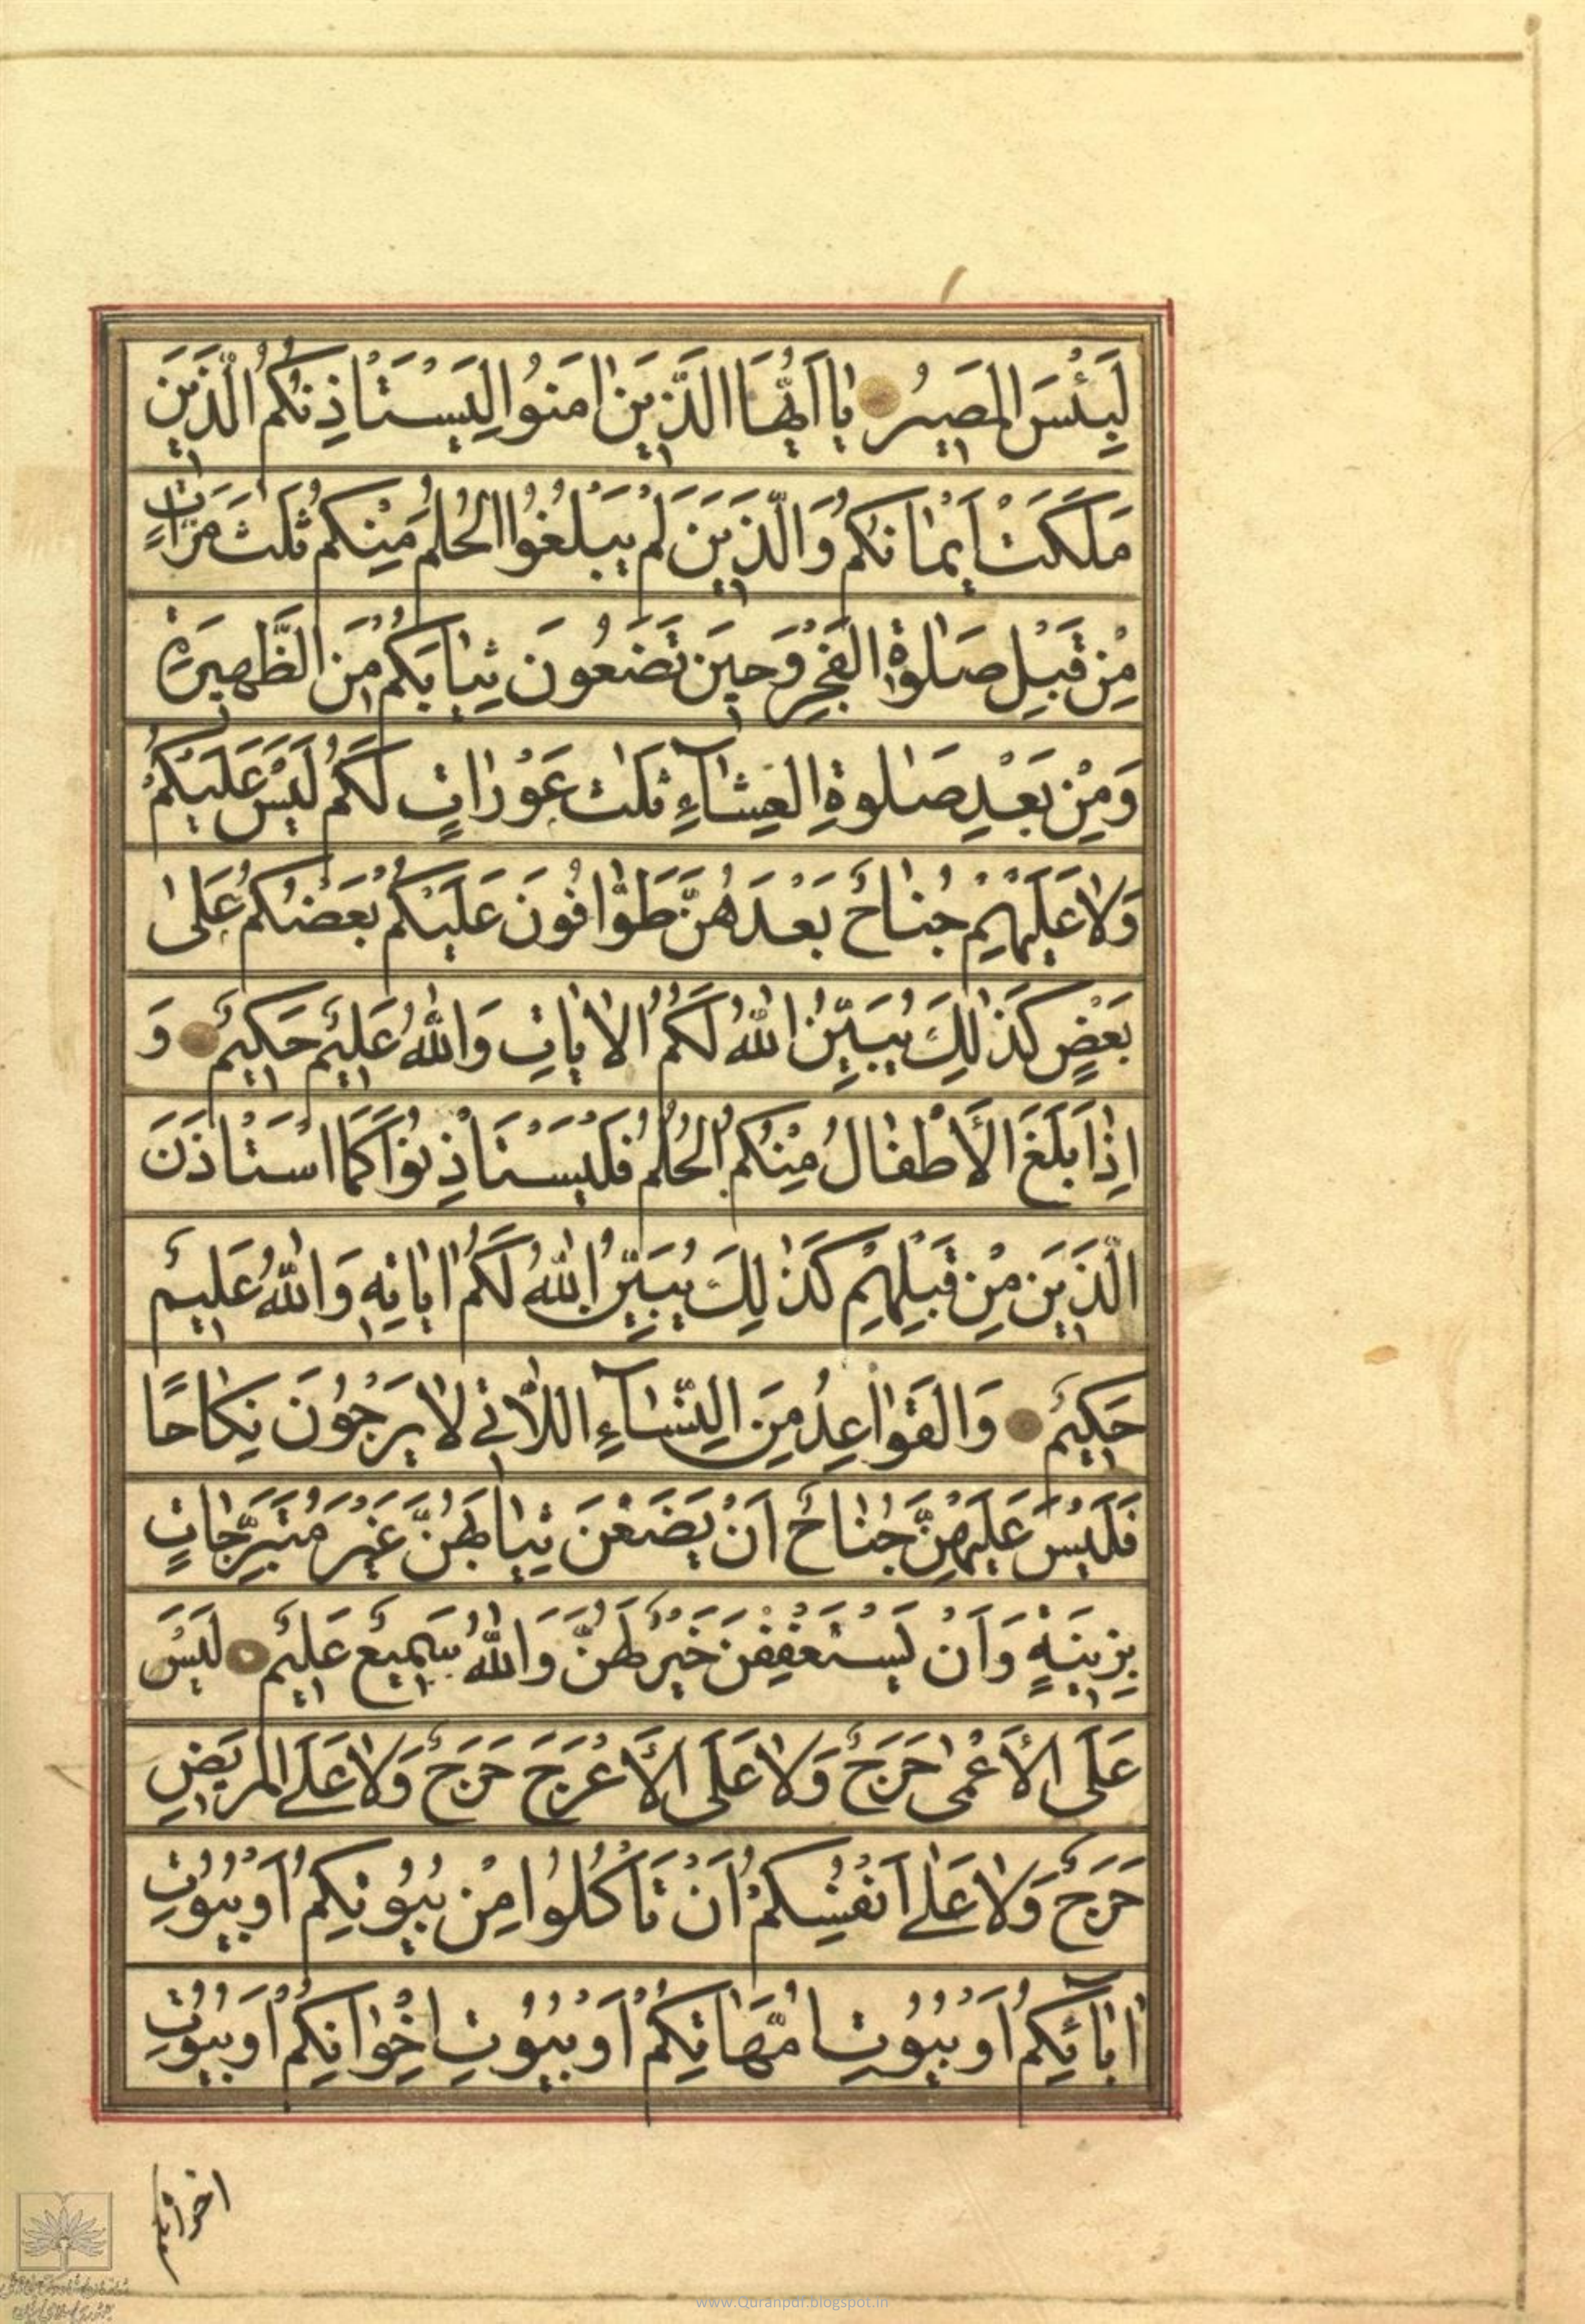 لَبِئْسَ الْمَصِيرُ يٰا اَيُّهَا الَّذِينَ اٰمَنُوا لِيَسْتَاْذِنْكُمُ الَّذِينَ
مَلَكَتْ اَيْمٰانُكُمْ وَالَّذِينَ لَمْ يَبْلُغُوا الْحُلُمَ مِنْكُمْ ثَلٰثَ مَرّٰاتٍ
مِنْ قَبْلِ صَلٰوةِ الْفَجْرِ وَحِينَ تَضَعُونَ ثِيٰابَكُمْ مِنَ الظَّهِيرَةِ
وَمِنْ بَعْدِ صَلٰوةِ الْعِشٰآءِ ثَلٰثُ عَوْرٰاتٍ لَكُمْ لَيْسَ عَلَيْكُمْ
وَلاٰ عَلَيْهِمْ جُنٰاحٌ بَعْدَهُنَّ طَوّٰافُونَ عَلَيْكُمْ بَعْضُكُمْ عَلٰى
بَعْضٍ كَذٰلِكَ يُبَيِّنُ اللّٰهُ لَكُمُ الْاٰيٰاتِ وَاللّٰهُ عَلِيمٌ حَكِيمٌ وَ
اِذٰا بَلَغَ الْاَطْفٰالُ مِنْكُمُ الْحُلُمَ فَلْيَسْتَاْذِنُوا كَمَا اسْتَاْذَنَ
الَّذِينَ مِنْ قَبْلِهِمْ كَذٰلِكَ يُبَيِّنُ اللّٰهُ لَكُمْ اٰيٰاتِهِ وَاللّٰهُ عَلِيمٌ
حَكِيمٌ وَالْقَوٰاعِدُ مِنَ النِّسٰآءِ اللّٰاتِي لاٰ يَرْجُونَ نِكٰاحًا
فَلَيْسَ عَلَيْهِنَّ جُنٰاحٌ اَنْ يَضَعْنَ ثِيٰابَهُنَّ غَيْرَ مُتَبَرِّجٰاتٍ
بِزِينَةٍ وَاَنْ يَسْتَعْفِفْنَ خَيْرٌ لَهُنَّ وَاللّٰهُ سَمِيعٌ عَلِيمٌ لَيْسَ
عَلَى الْاَعْمٰى حَرَجٌ وَلاٰ عَلَى الْاَعْرَجِ حَرَجٌ وَلاٰ عَلَى الْمَرِيضِ
حَرَجٌ وَلاٰ عَلٰى اَنْفُسِكُمْ اَنْ تَاْكُلُوا مِنْ بُيُوتِكُمْ اَوْ بُيُوتِ
اٰبٰآئِكُمْ اَوْ بُيُوتِ اُمَّهٰاتِكُمْ اَوْ بُيُوتِ اِخْوٰانِكُمْ اَوْ بُيُوتِ
www.Quranpdf.blogspot.in